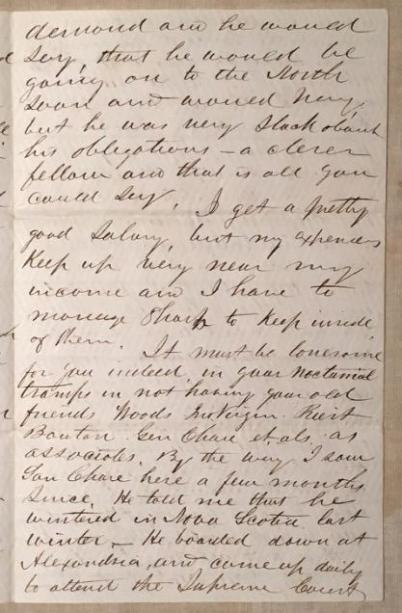 demand and he would
say, that he would be
going on to the North
soon and would pay,
but he was very slack about
his obligations - a clever
fellow and that is all you
could say. I get a pretty
good salary, but my expenses
keep up very near my
income and I have to
manage sharp to keep inside
of them. It must be lonesome
for you indeed in your nocturnal
tramps in not having your old
friends Woods
Gen Chase et als. as
associates. By the way I saw
Gen Chase here a few months
since. He told me that he
wintered in Nova Scotia last
winter - He boarded down at
Alexandria, and came up daily
to attend the Supreme Court